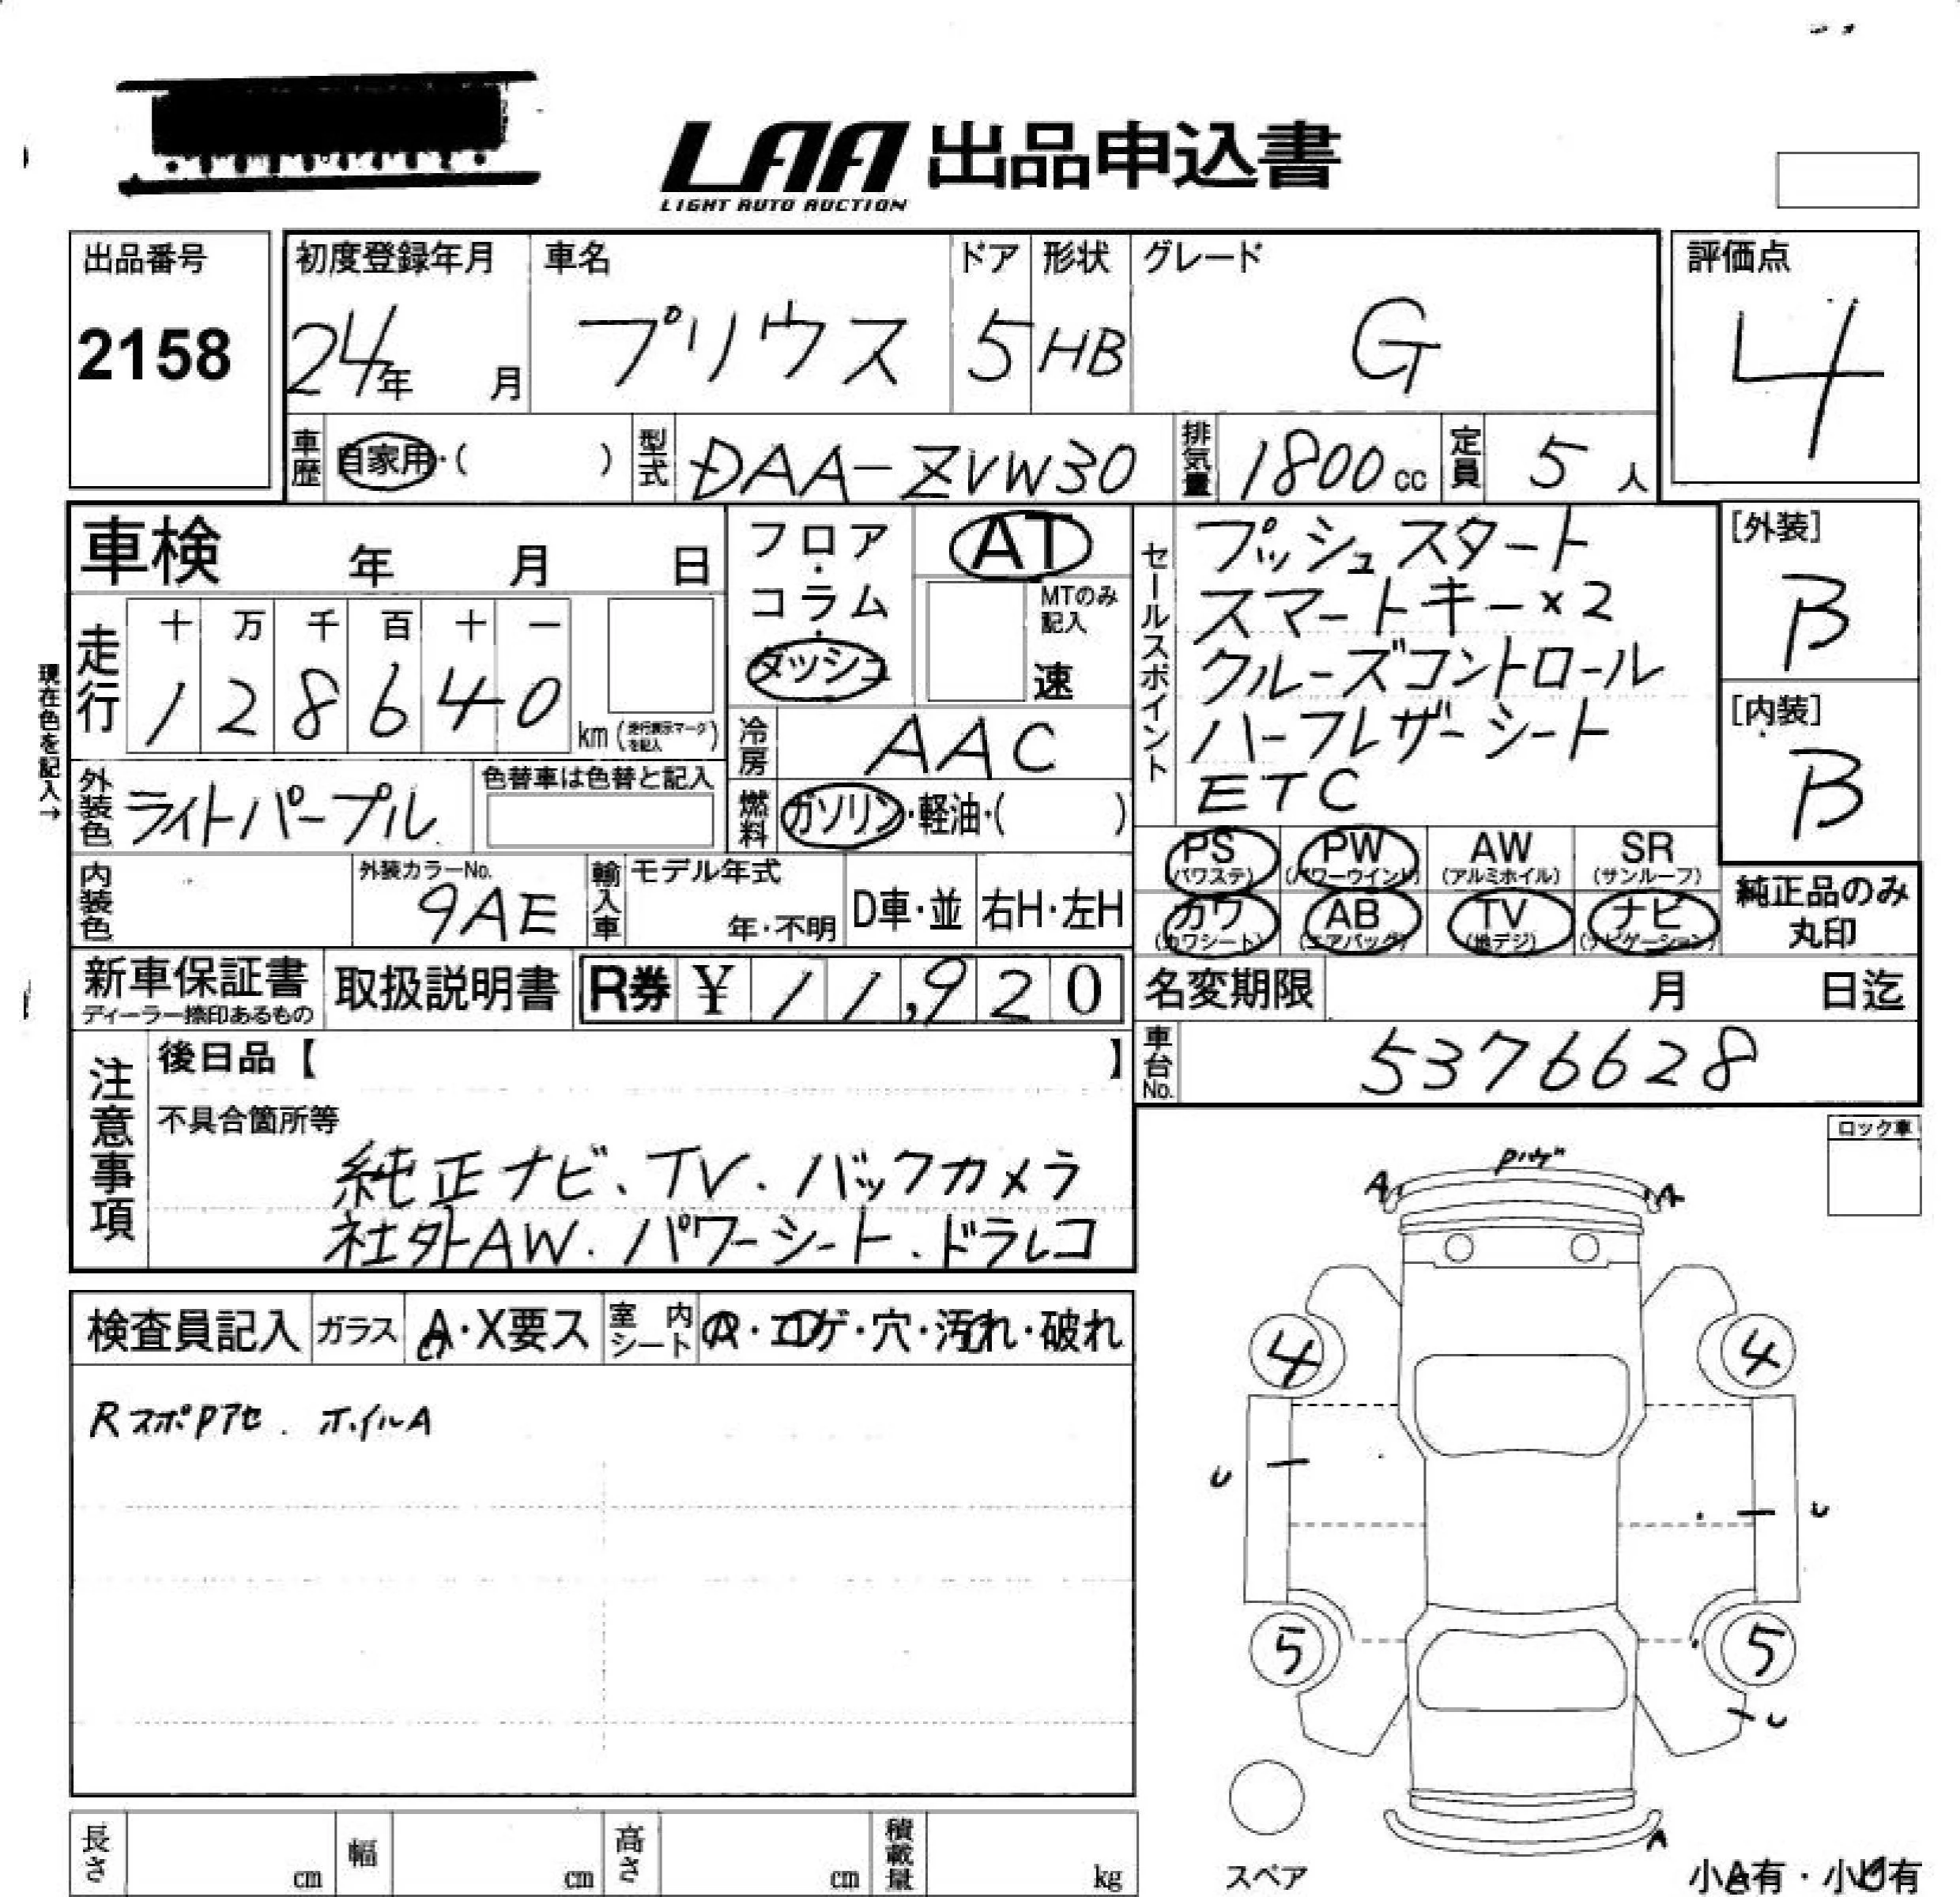 LAA 出品申込書
LIGHT AUTO AUCTION
出品番号
2158
初度登録年月
24年 月
車名
プリウス
ドア
5
形状
HB
グレード
G
評価点
4
車歴
自家用・( )
型式
DAA-ZVW30
排気量
1800cc
定員
5人
車検 年 月 日
フロア・コラム・ダッシュ
AT
MTのみ記入
速
セールスポイント
プッシュスタート
スマートキー×2
クルーズコントロール
ハーフレザーシート
ETC
[外装]
B
[内装]
B
現在色を記入→
走行
十 万 千 百 十 一
1 2 8 6 4 0 km
(走行表示マークを記入)
冷房
AAC
外装色
ライトパープル
色替車は色替と記入
燃料
ガソリン・軽油・( )
PS (パワステ)
PW (パワーウインド)
AW (アルミホイル)
SR (サンルーフ)
カワ (カワシート)
AB (エアバッグ)
TV (地デジ)
ナビ (ナビゲーション)
純正品のみ丸印
内装色
外装カラーNo.
9AE
輸入車
モデル年式
年・不明
D車・並
右H・左H
新車保証書
ディーラー捺印あるもの
取扱説明書
R券 ¥ 11,920
名変期限 月 日迄
車台No.
5376628
注意事項
後日品【 】
不具合箇所等
純正ナビ、TV・バックカメラ
社外AW・パワーシート・ドラレコ
ロック車
検査員記入
ガラス
A・X要ス
室内シート
・コゲ・穴・汚れ・破れ
RスポPアセ. ホイルA
A A
4 4
U U
5 5
U
A
スペア
小A有・小U有
長さ cm
幅 cm
高さ cm
積載量 kg